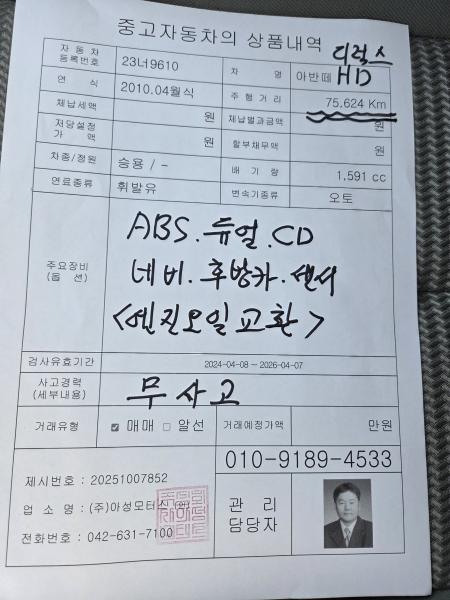 중고자동차의 상품내역
자동차등록번호 23너9610 차 명 아반떼 HD 디럭스
연 식 2010.04월식 주행거리 75.624 Km
체납세액 원 체납벌과금액 원
저당설정가액 원 할부채무액 원
차종/정원 승용 / - 배기량 1.591 cc
연료종류 휘발유 변속기종류 오토
주요장비 (옵 션)
ABS.듀얼.CD
네비.후방카.센서
<엔진오일교환>
검사유효기간 2024-04-08 ~ 2026-04-07
사고경력 (세부내용) 무사고
거래유형 ☑ 매매 □ 알선 거래예정가액 만원
제시번호 : 20251007852
업 소 명 : (주)아성모터스
전화번호 : 042-631-7100
010-9189-4533
관 리
담당자